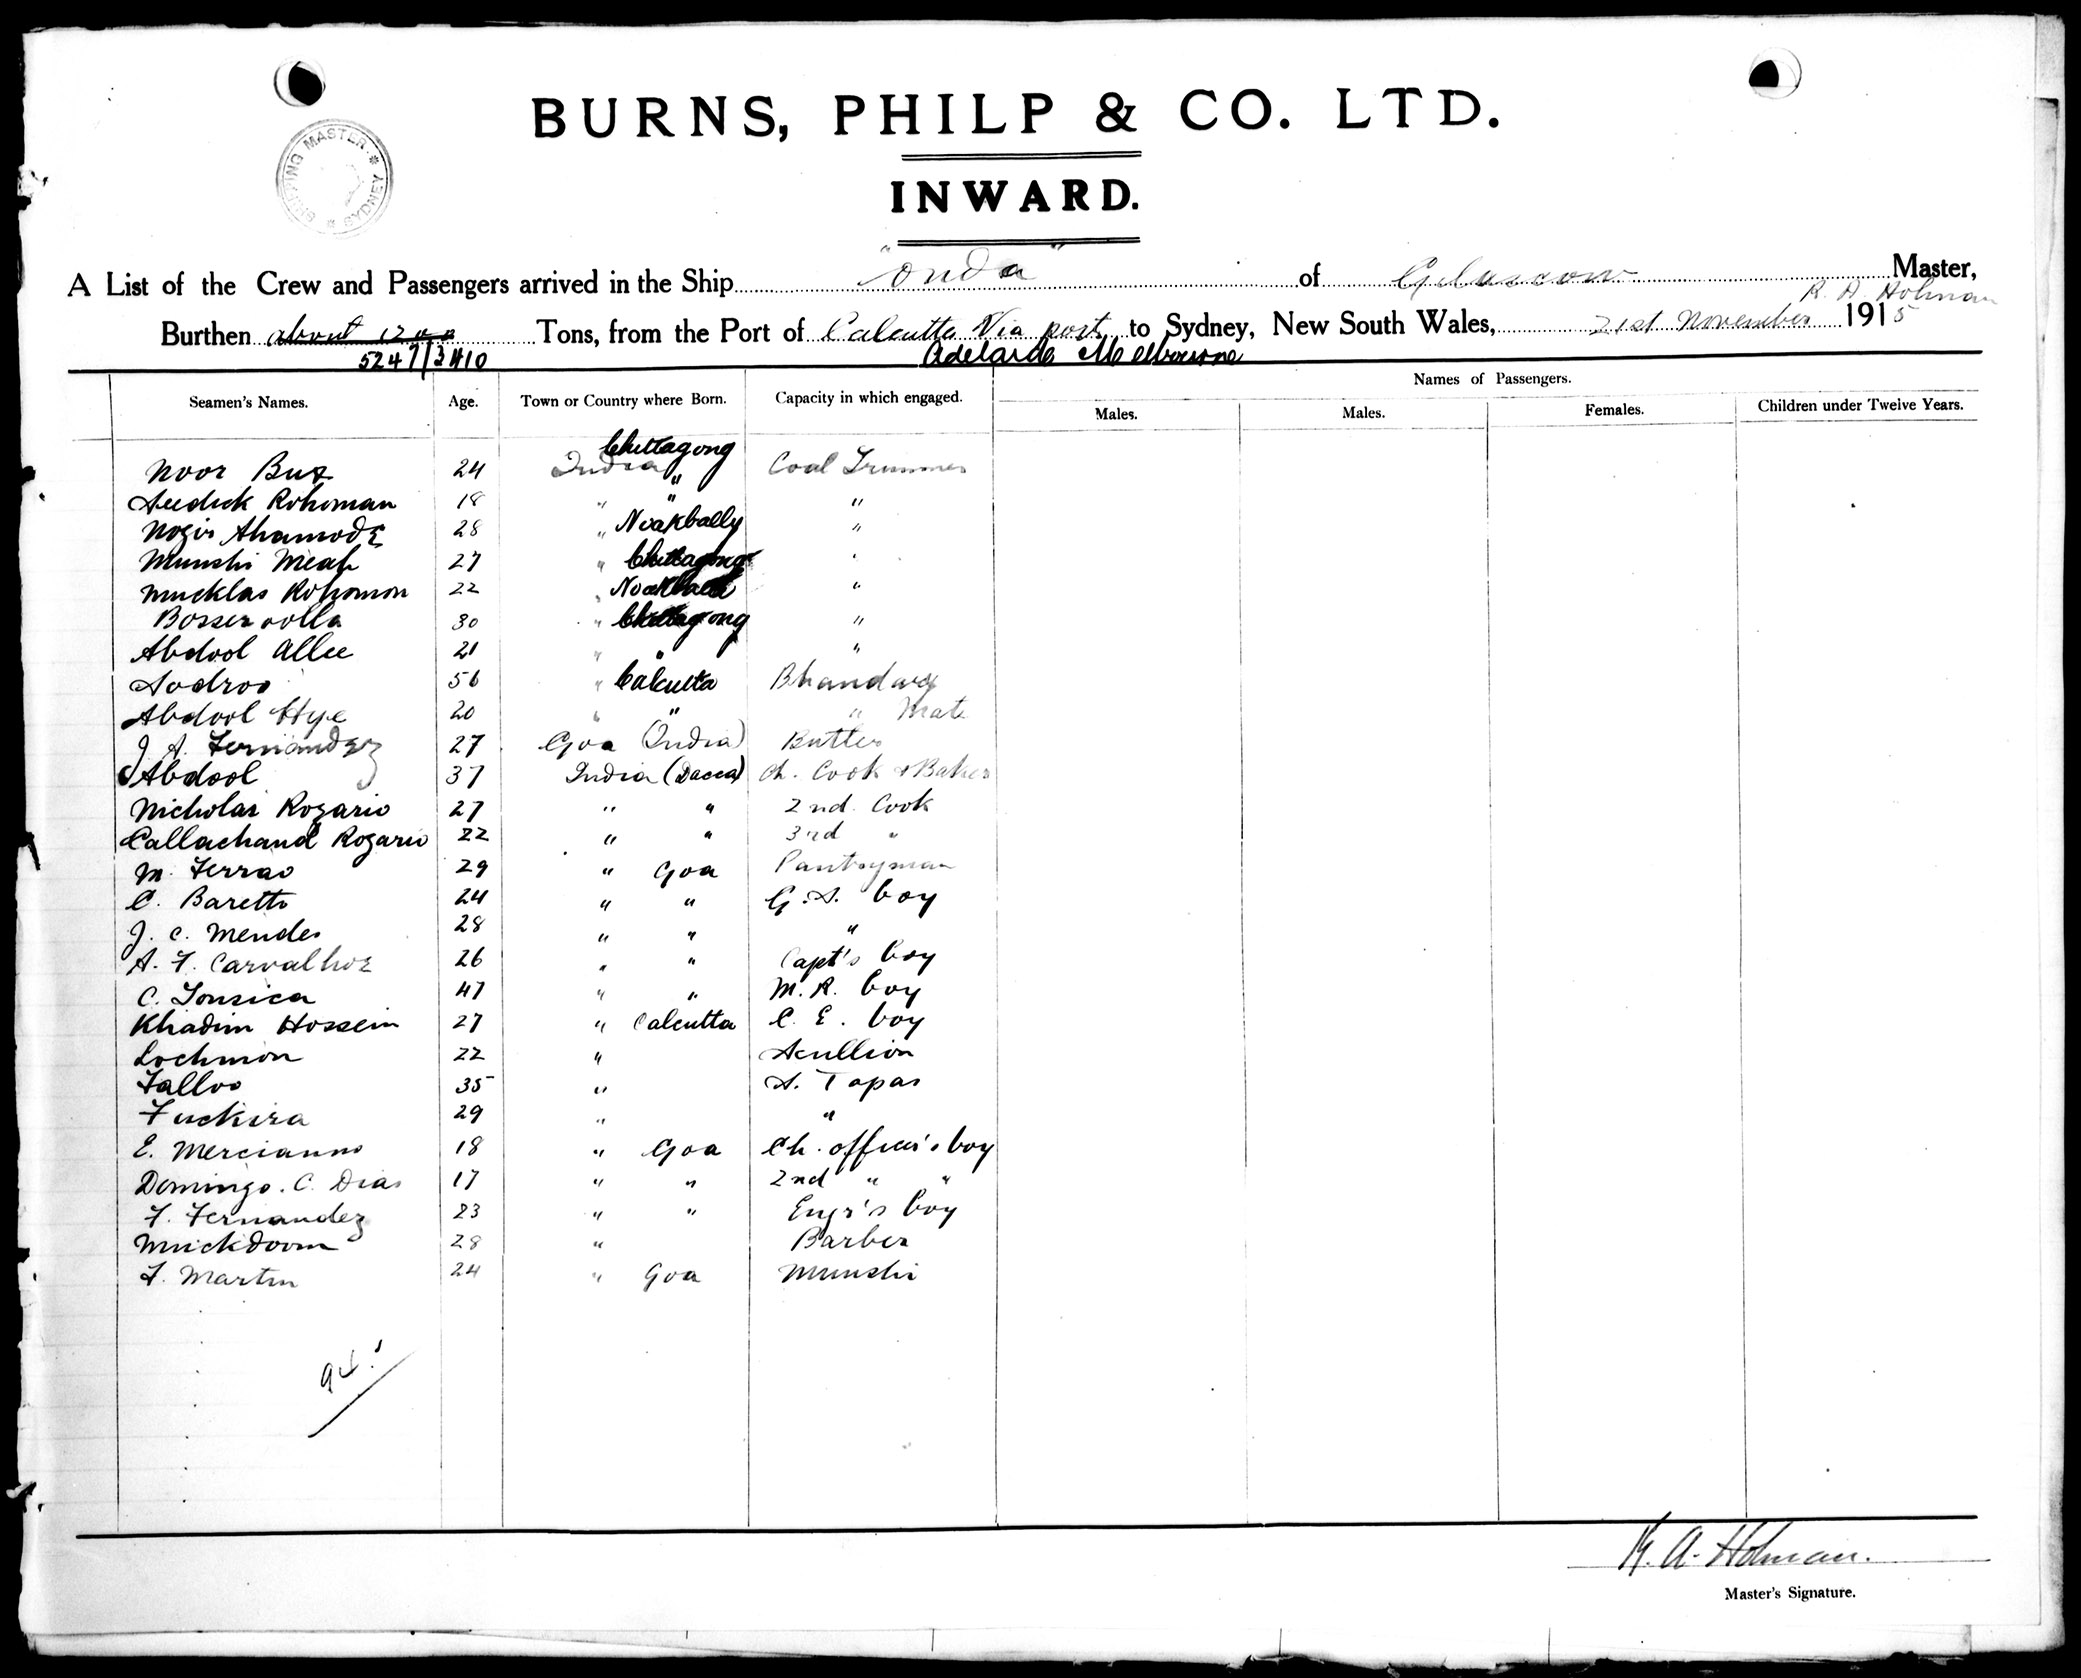 BURNS, PHILP & CO. LTD.
INWARD.
SHIPPING MASTER * SYDNEY *
A List of the Crew and Passengers arrived in the Ship "Onda" of Glasgow Master,
R. A. Holman
Burthen about 1200 Tons, from the Port of Calcutta Via ports to Sydney, New South Wales, 21st November 1915
5247/3410 Adelaide Melbourne
Names of Passengers.
Seamen's Names. Age. Town or Country where Born. Capacity in which engaged. Males. Males. Females. Children under Twelve Years.
Chittagong
Noor Bux 24 India " Coal Trimmer
Seedick Rohoman 18 " " "
Nozir Ahamode 28 " Noakhally "
Munshi Meah 27 " Chittagong "
Mucklas Rohomon 22 " "
Bosser oolla 30 " Chittagong "
Abdool Allee 21 " " "
Sodroo 56 " Calcutta Bhandary
Abdool Hye 20 " " " Mate
J A. Fernandez 27 Goa (India) Butler
Abdool 37 India (Dacca) Ch. Cook & Baker
Nicholas Rozario 27 " " 2nd. Cook
Callachand Rozario 22 " " 3rd "
M. Ferrao 29 " Goa Pantryman
C. Baretto 24 " " G.S. boy
J. C. Mendes 28 " " "
A. F. Carvalhoz 26 " " Capt's boy
C. Fonsica 47 " " M. R. boy
Khadim Hossein 27 " Calcutta C. E. boy
Lochmon 22 " Scullion
Falloo 35 " S. Topas
Fuckira 29 " "
E. Mercianno 18 " Goa Ch. officer's boy
Domingo. C. Dias 17 " " 2nd " "
F. Fernandez 23 " " Engr's boy
Muckdoom 28 " Barber
F. Martin 24 " Goa Munshi
94.
R. A. Holman.
Master's Signature.